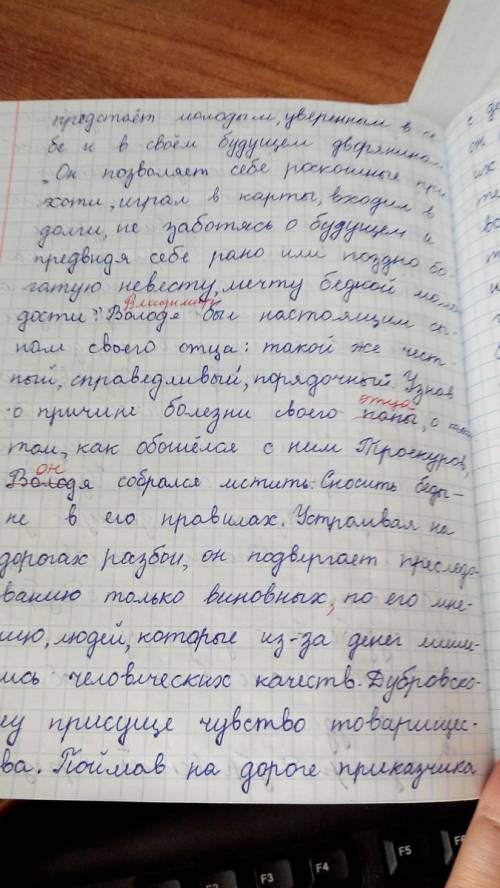 предстаёт молодым, уверенным в се
бе и в своём будущем дворянином.
„Он позволяет себе роскошные при
хоти, играл в карты, входил в
долги, не заботясь о будущем и
предвидя себе рано или поздно бо-
гатую невесту, мечту бедной моло
Владимир
дости". Володя был настоящим сы-
ном своего отца: такой же чест-
ный, справедливый, порядочный. Узнав
отца
о причине болезни своего папы, о
том, как обошёлся с ним Троекуров,
он
Володя собрался мстить. Сносить беды-
не в его правилах. Устраивая на
дорогах разбои, он подвергает преследо-
ванию только виновных, по его мне-
нию, людей, которые из-за денег лиши-
лись человеческих качеств. Дубровско-
му присуще чувство товарищес-
ва. Поймав на дороге приказчика
F3
F4
F5